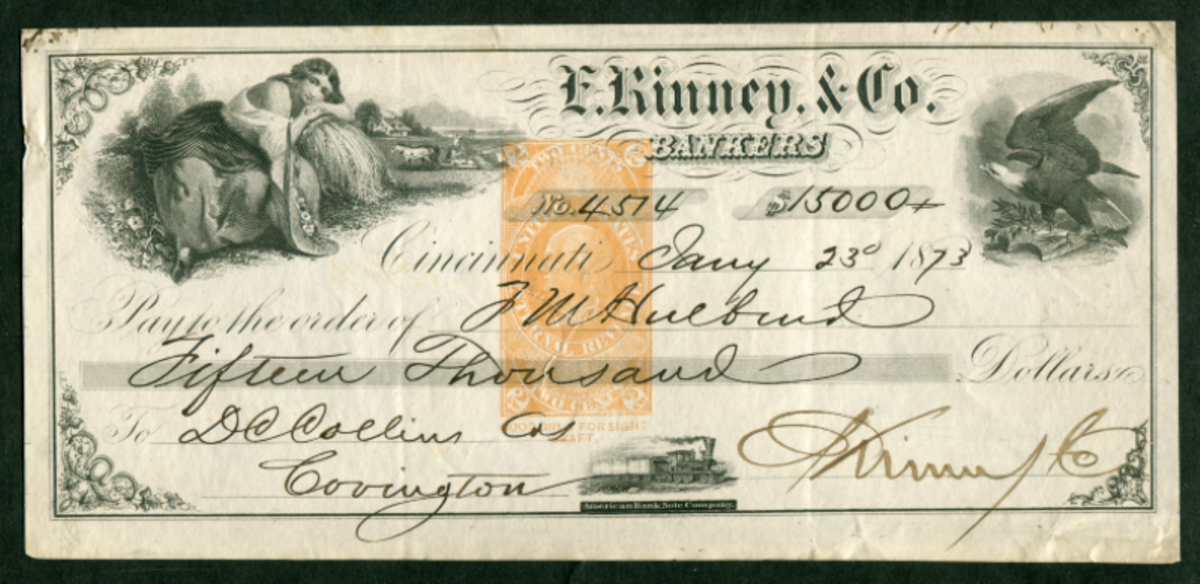 E. Kinney, & Co.
BANKERS
No. 4514 $15000
Cincinnati, Jany 23d 1873
Pay to the order of F M Hulburd
Fifteen Thousand Dollars
To D C Collins Cas
Covington
E Kinney & Co
TWO CENTS
UNITED STATES
INTERNAL REVENUE
TWO CENTS
GOOD ONLY FOR SIGHT
DRAFT.
American Bank Note Company.